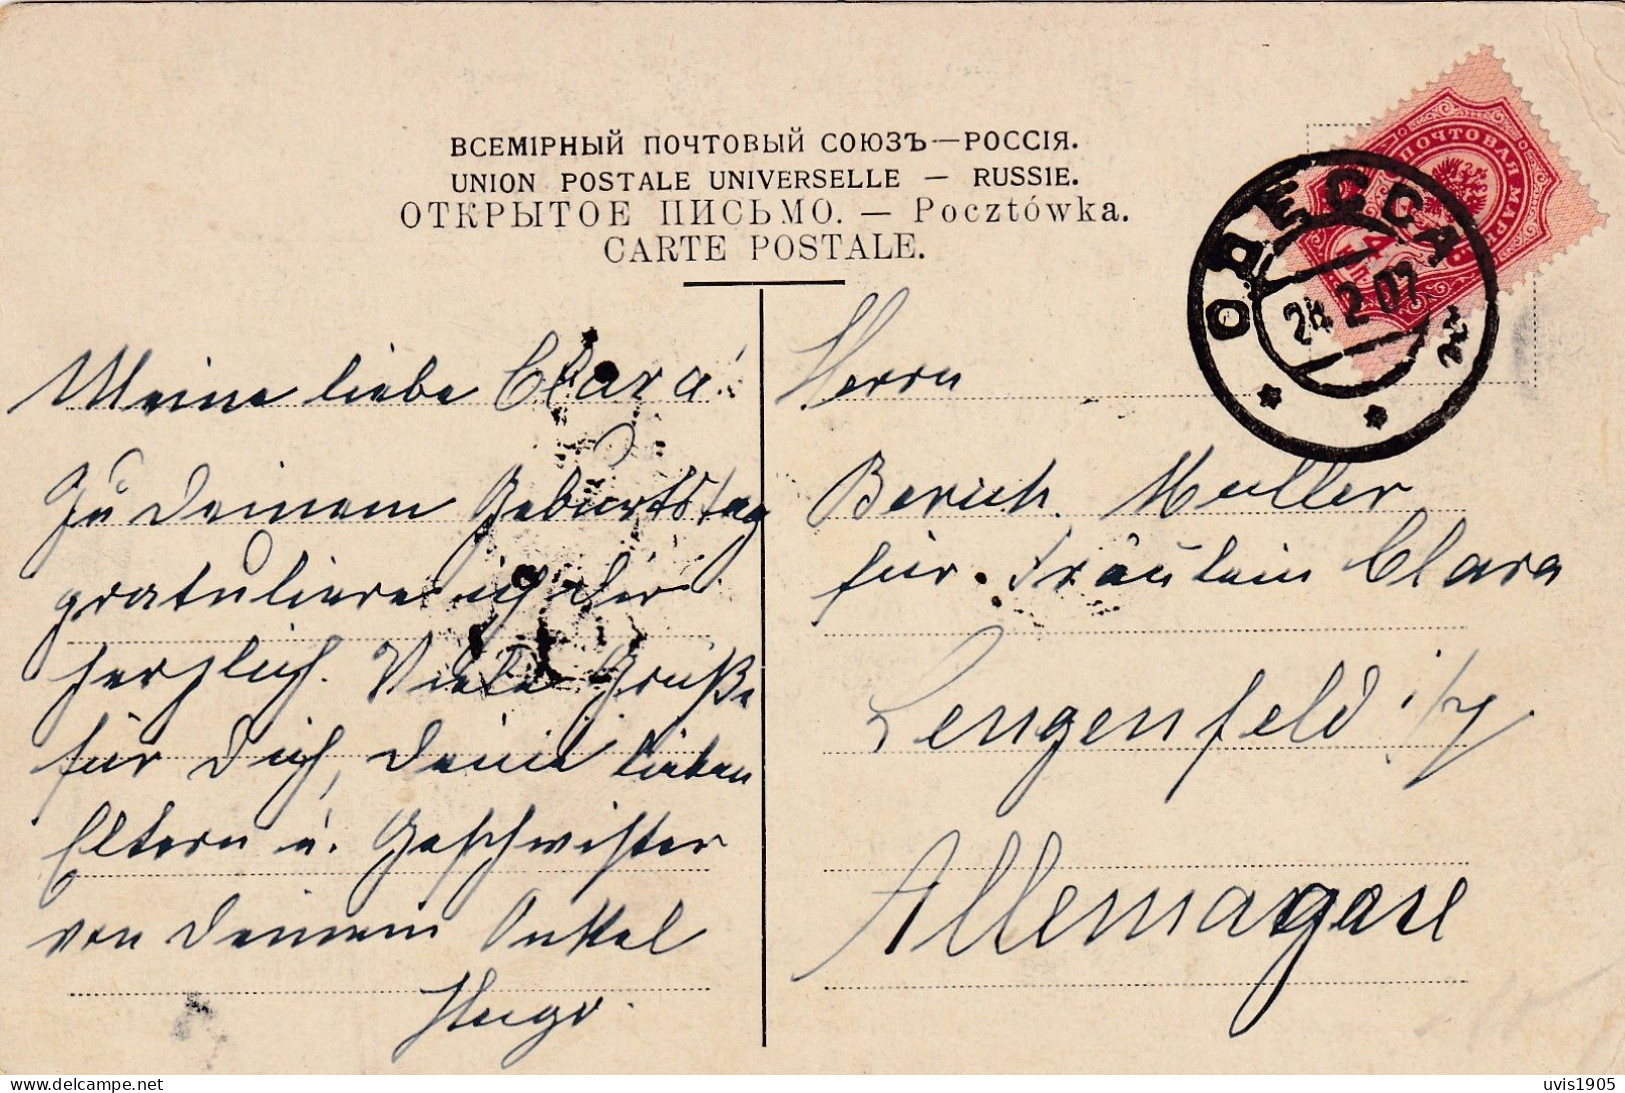 ВСЕМІРНЫЙ ПОЧТОВЫЙ СОЮЗЪ — РОССІЯ.
UNION POSTALE UNIVERSELLE — RUSSIE.
ОТКРЫТОЕ ПИСЬМО. — Pocztówka.
CARTE POSTALE.
ПОЧТОВАЯ МАРК
ОДЕССА
2.07
Meine liebe Clara!
Zu Deinem Geburtstag
gratuliere ich Dir
herzlich. Viele Grüße
für Dich, Deine lieben
Eltern u. Geschwister
von Deinem Onkel
Hugo.
Herrn
Müller
für Fräulein Clara
Lengenfeld i/V
Allemagne
www.delcampe.net
uvis1905